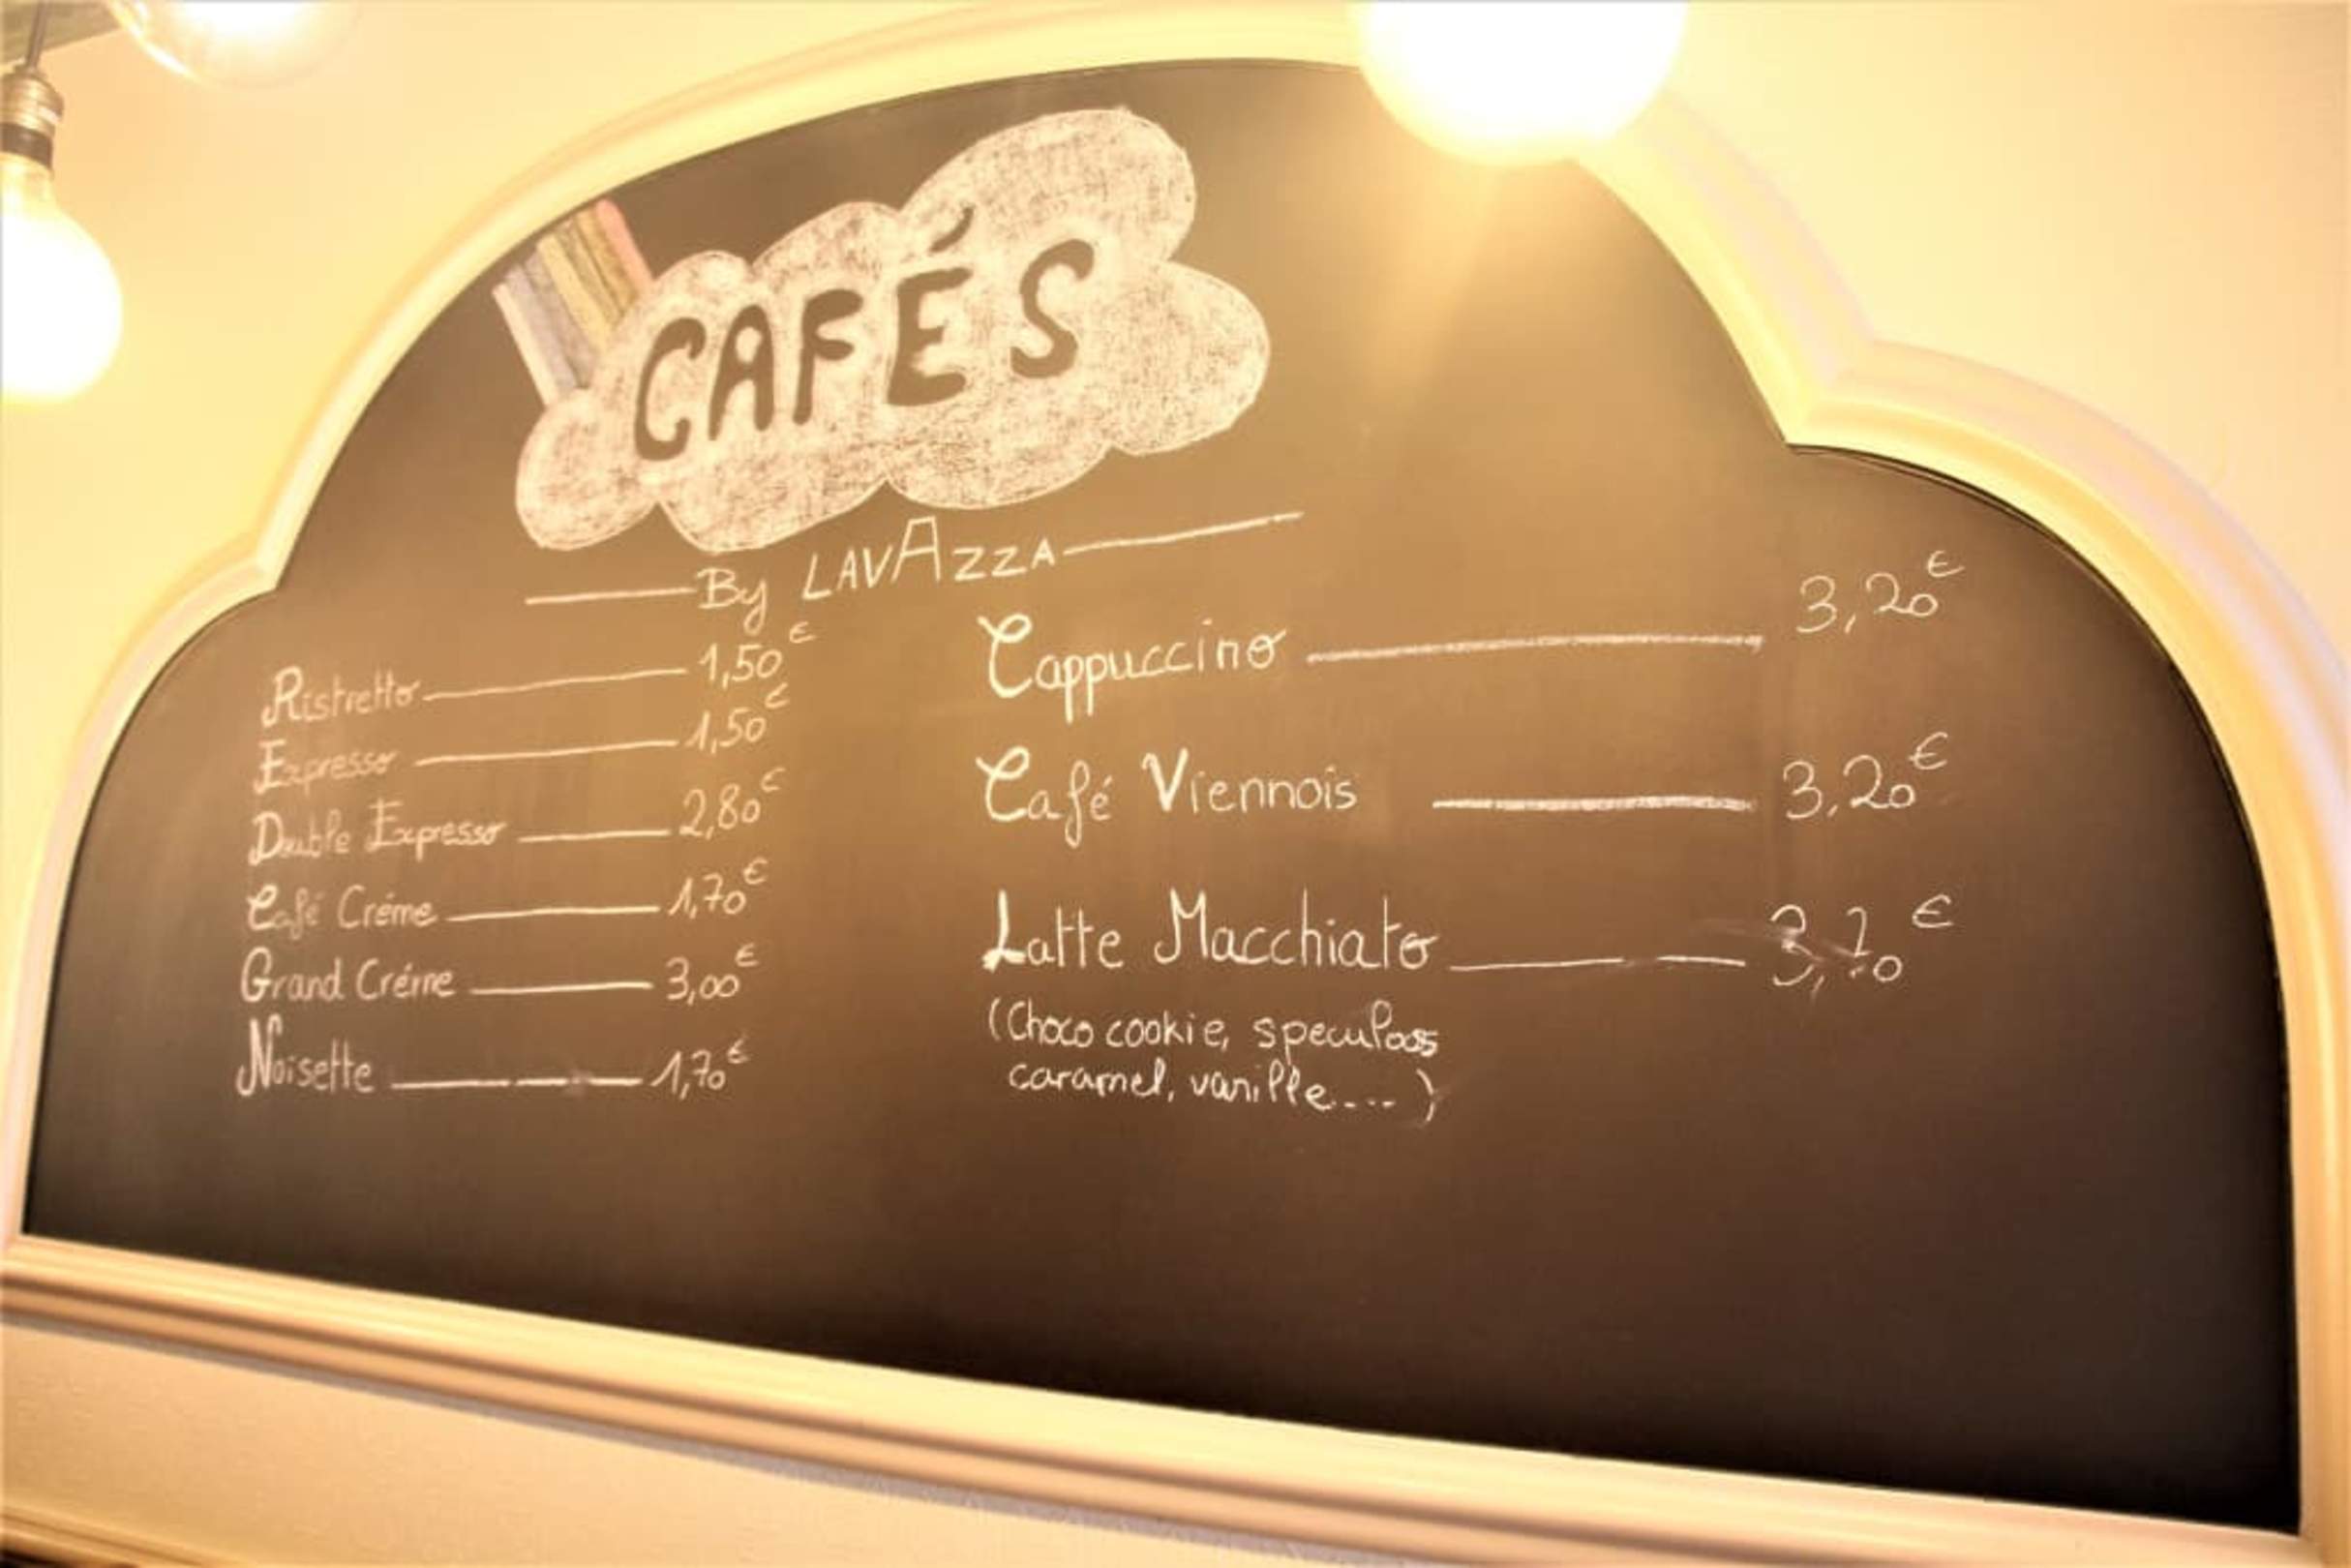 CAFÉS
By LAVAZZA
Ristretto 1,50€
Expresso 1,50€
Double Expresso 2,80€
Café Créme 1,70€
Grand Créme 3,00€
Noisette 1,70€
Cappuccino 3,20€
Café Viennois 3,20€
Latte Macchiato 3,70€
(Choco cookie, speculoos
caramel, vanille....)